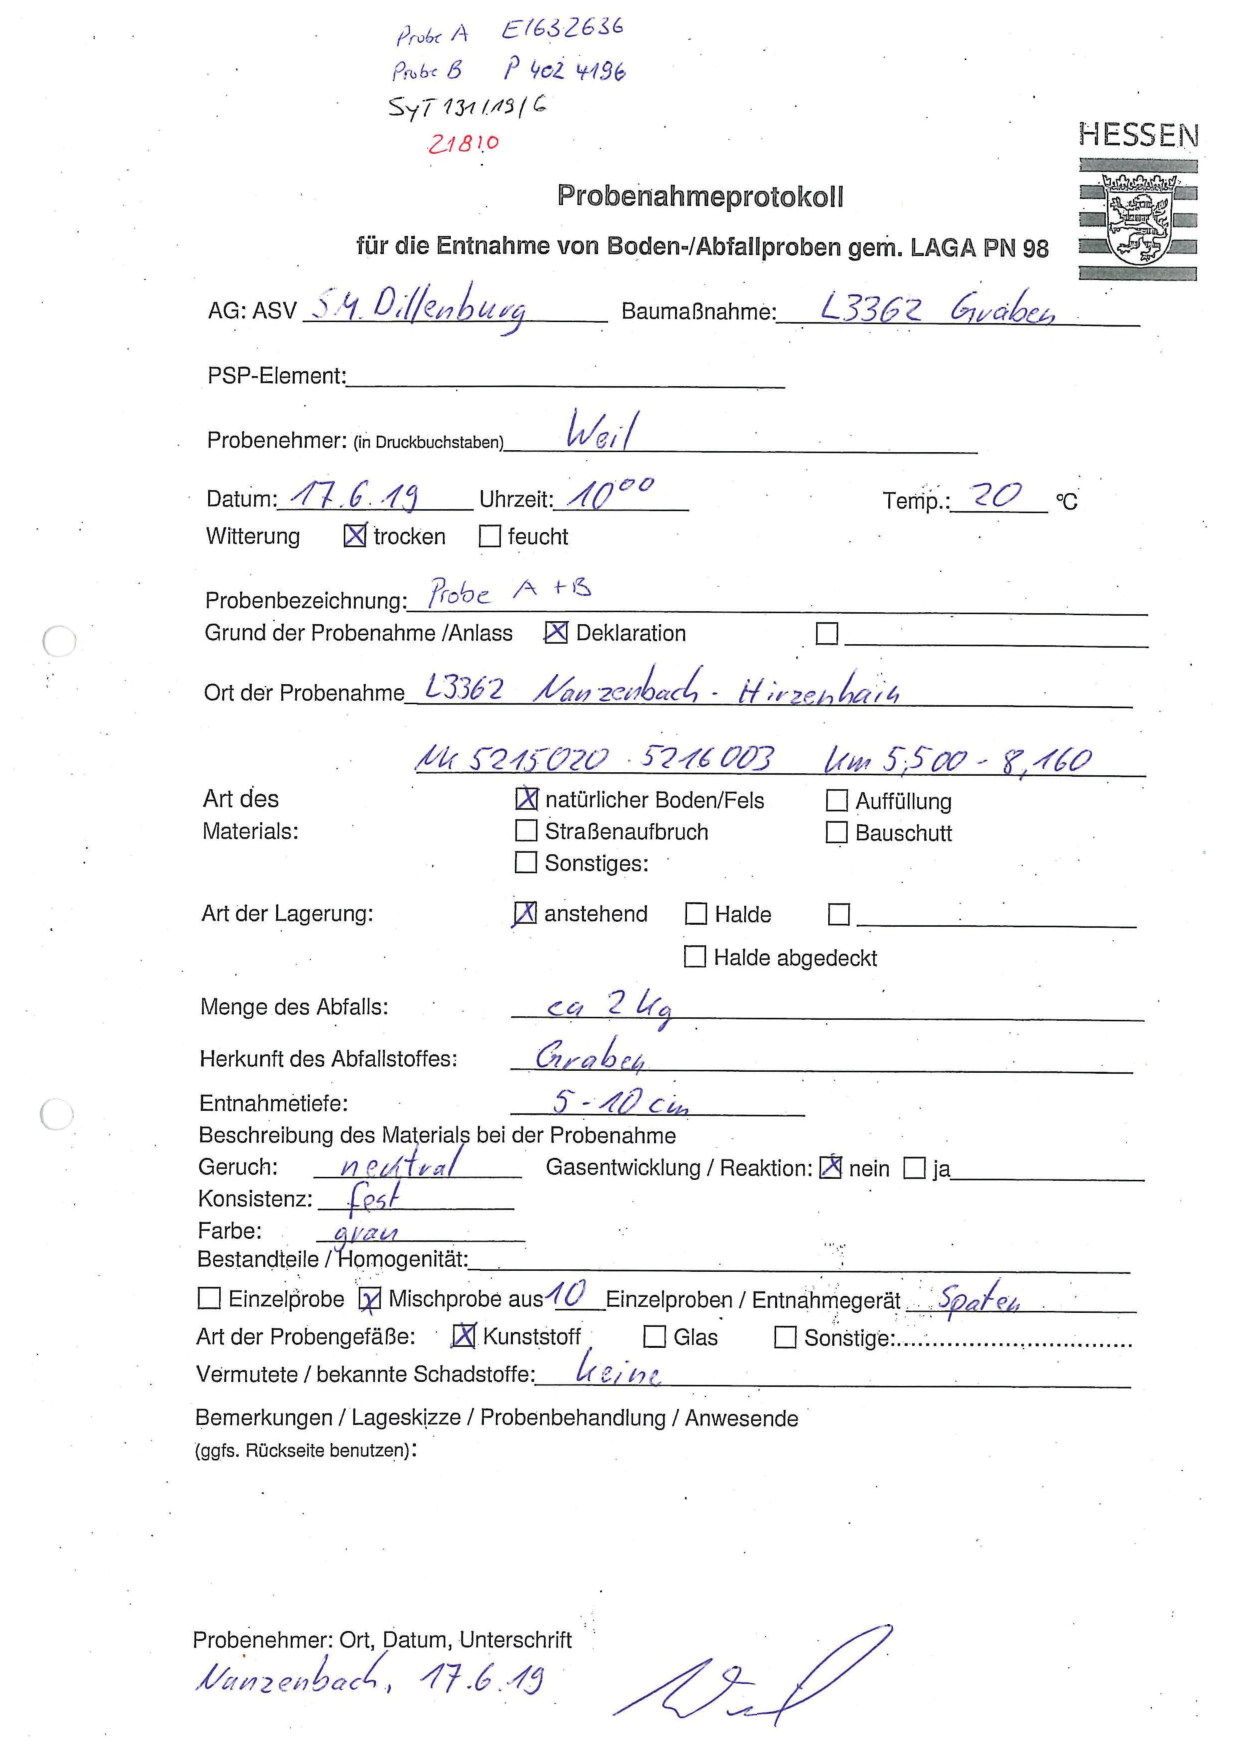 Probe A E1632636
Probe B P 402 4196
SyT 131/19/G
21810
HESSEN
Probenahmeprotokoll
für die Entnahme von Boden-/Abfallproben gem. LAGA PN 98
AG: ASV S.M. Dillenburg Baumaßnahme: L3362 Gräben
PSP-Element:
Probenehmer: (in Druckbuchstaben) Weil
Datum: 17.6.19 Uhrzeit: 10⁰⁰ Temp.: 20 °C
Witterung ☒ trocken ☐ feucht
Probenbezeichnung: Probe A + B
Grund der Probenahme /Anlass ☒ Deklaration ☐
Ort der Probenahme L3362 Nanzenbach - Hirzenhain
NK 5215020 - 5216003 Km 5,500 - 8,160
Art des ☒ natürlicher Boden/Fels ☐ Auffüllung
Materials: ☐ Straßenaufbruch ☐ Bauschutt
☐ Sonstiges:
Art der Lagerung: ☒ anstehend ☐ Halde ☐
☐ Halde abgedeckt
Menge des Abfalls: ca 2 kg
Herkunft des Abfallstoffes: Graben
Entnahmetiefe: 5 - 10 cm
Beschreibung des Materials bei der Probenahme
Geruch: neutral Gasentwicklung / Reaktion: ☒ nein ☐ ja
Konsistenz: fest
Farbe: grau
Bestandteile / Homogenität:
☐ Einzelprobe ☒ Mischprobe aus 10 Einzelproben / Entnahmegerät Spaten
Art der Probengefäße: ☒ Kunststoff ☐ Glas ☐ Sonstige:
Vermutete / bekannte Schadstoffe: keine
Bemerkungen / Lageskizze / Probenbehandlung / Anwesende
(ggfs. Rückseite benutzen):
Probenehmer: Ort, Datum, Unterschrift
Nanzenbach, 17.6.19 Weil